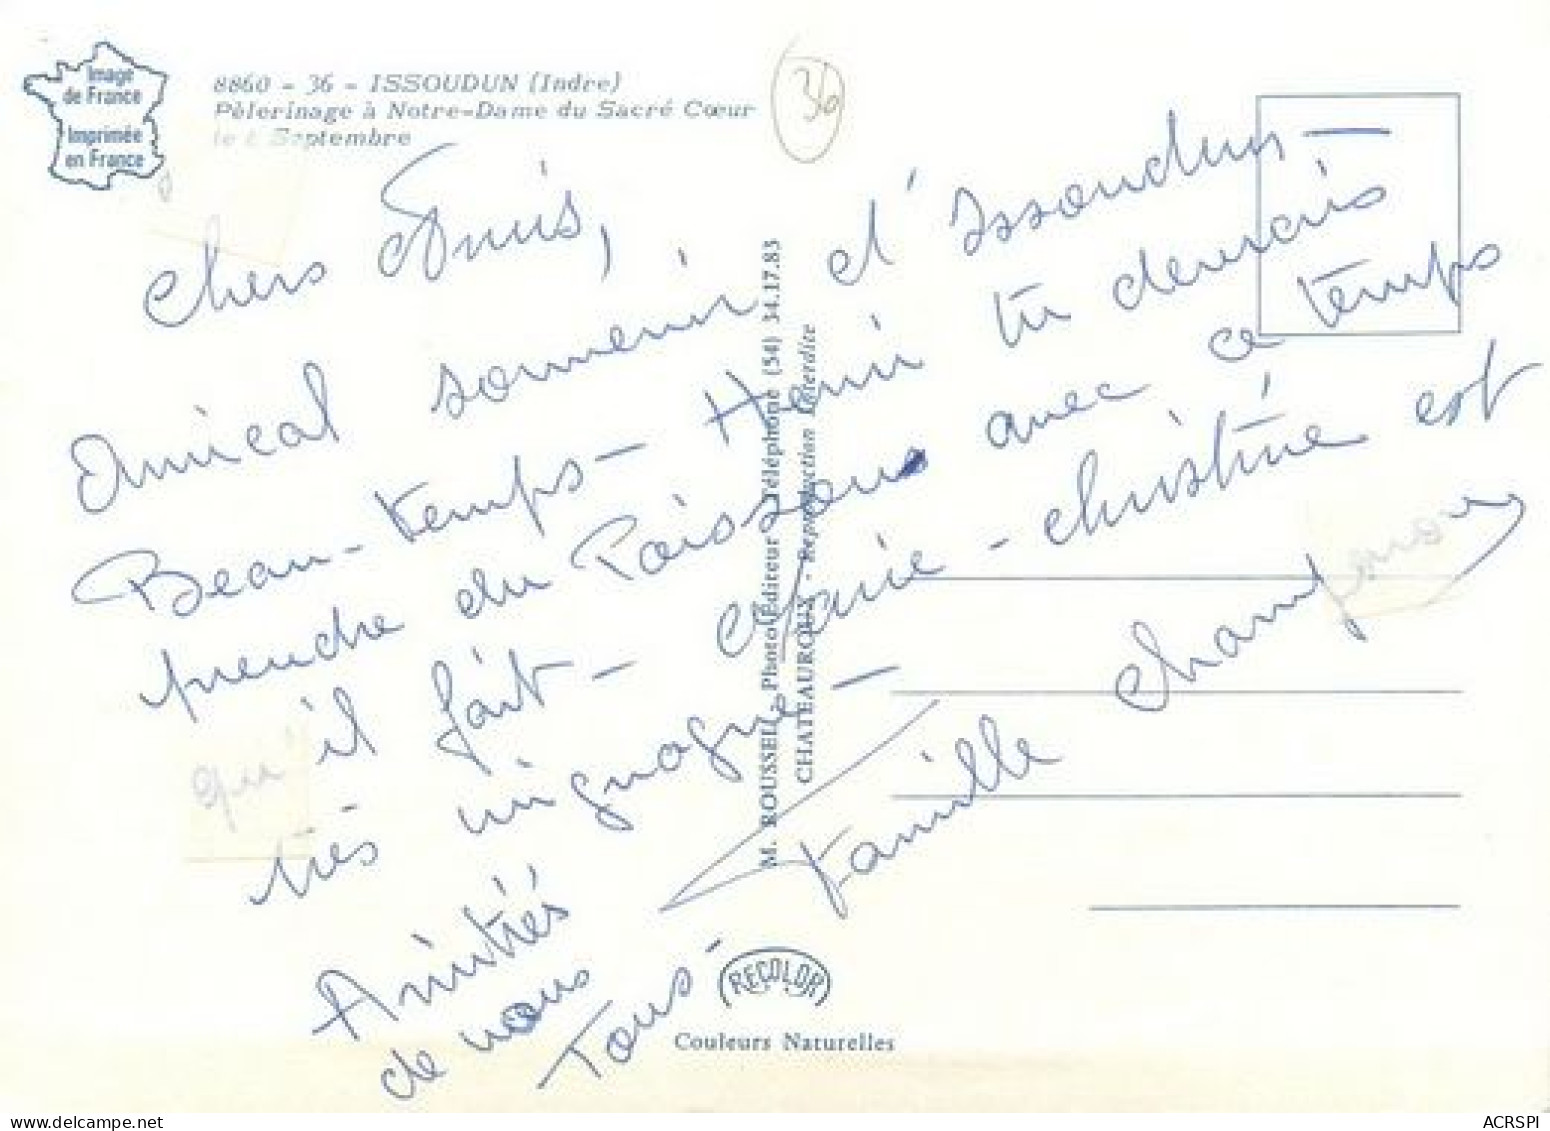 Image
de France
Imprimée
en France
8860 - 36 - ISSOUDUN (Indre)
Pèlerinage à Notre-Dame du Sacré Cœur
le 8 Septembre
36
Chers Amis,
Amical souvenir d'Issoudun -
Beau-temps - Henri tu devrais
prendre du Poissons avec ce temps
qu'il fait - Marie-Christine est
très mignogne -
Amitiés
de nous
Tous -
Famille
M. ROUSSEL, Photo Editeur Téléphone (54) 34.17.83
CHATEAUROUX - Reproduction Interdite
RECOLOR
Couleurs Naturelles
ACRSPI